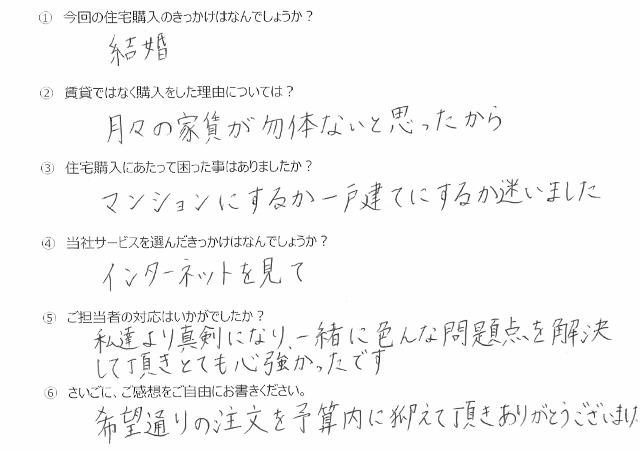 ① 今回の住宅購入のきっかけはなんでしょうか？
結婚
② 賃貸ではなく購入をした理由については？
月々の家賃が勿体ないと思ったから
③ 住宅購入にあたって困った事はありましたか？
マンションにするか一戸建てにするか迷いました
④ 当社サービスを選んだきっかけはなんでしょうか？
インターネットを見て
⑤ ご担当者の対応はいかがでしたか？
私達より真剣になり、一緒に色んな問題点を解決
して頂きとても心強かったです
⑥ さいごに、ご感想をご自由にお書きください。
希望通りの注文を予算内に抑えて頂きありがとうございました